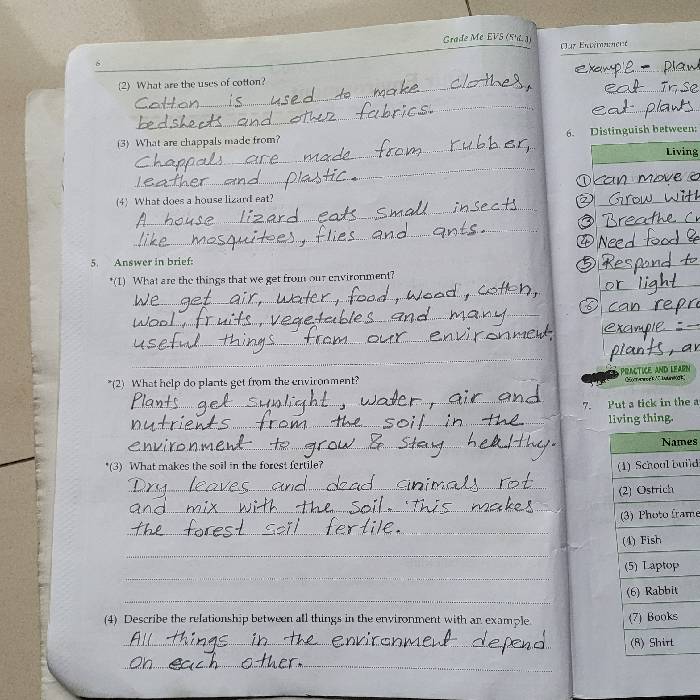 Grade Me EVS (Std. 3)
6
(2) What are the uses of cotton?
Cotton is used to make clothes,
bedsheets and other fabrics.
(3) What are chappals made from?
Chappals are made from rubber,
leather and plastic.
(4) What does a house lizard eat?
A house lizard eats small insects
like mosquitoes, flies and ants.
5. Answer in brief:
*(1) What are the things that we get from our environment?
We get air, water, food, wood, cotton,
wool, fruits, vegetables and many
useful things from our environment.
*(2) What help do plants get from the environment?
Plants get sunlight, water, air and
nutrients from the soil in the
environment to grow & stay healthy.
*(3) What makes the soil in the forest fertile?
Dry leaves and dead animals rot
and mix with the soil. This makes
the forest soil fertile.
(4) Describe the relationship between all things in the environment with an example.
All things in the environment depend
on each other.
Our Environment
example - plan
eat inse
eat plants
6. Distinguish between:
Living
① can move
② Grow with
③ Breathe
④ Need food &
⑤ Respond to
or light
⑥ can repro
example :-
plants, an
PRACTICE AND LEARN
7. Put a tick in the a
living thing.
Names
(1) School build
(2) Ostrich
(3) Photo frame
(4) Fish
(5) Laptop
(6) Rabbit
(7) Books
(8) Shirt